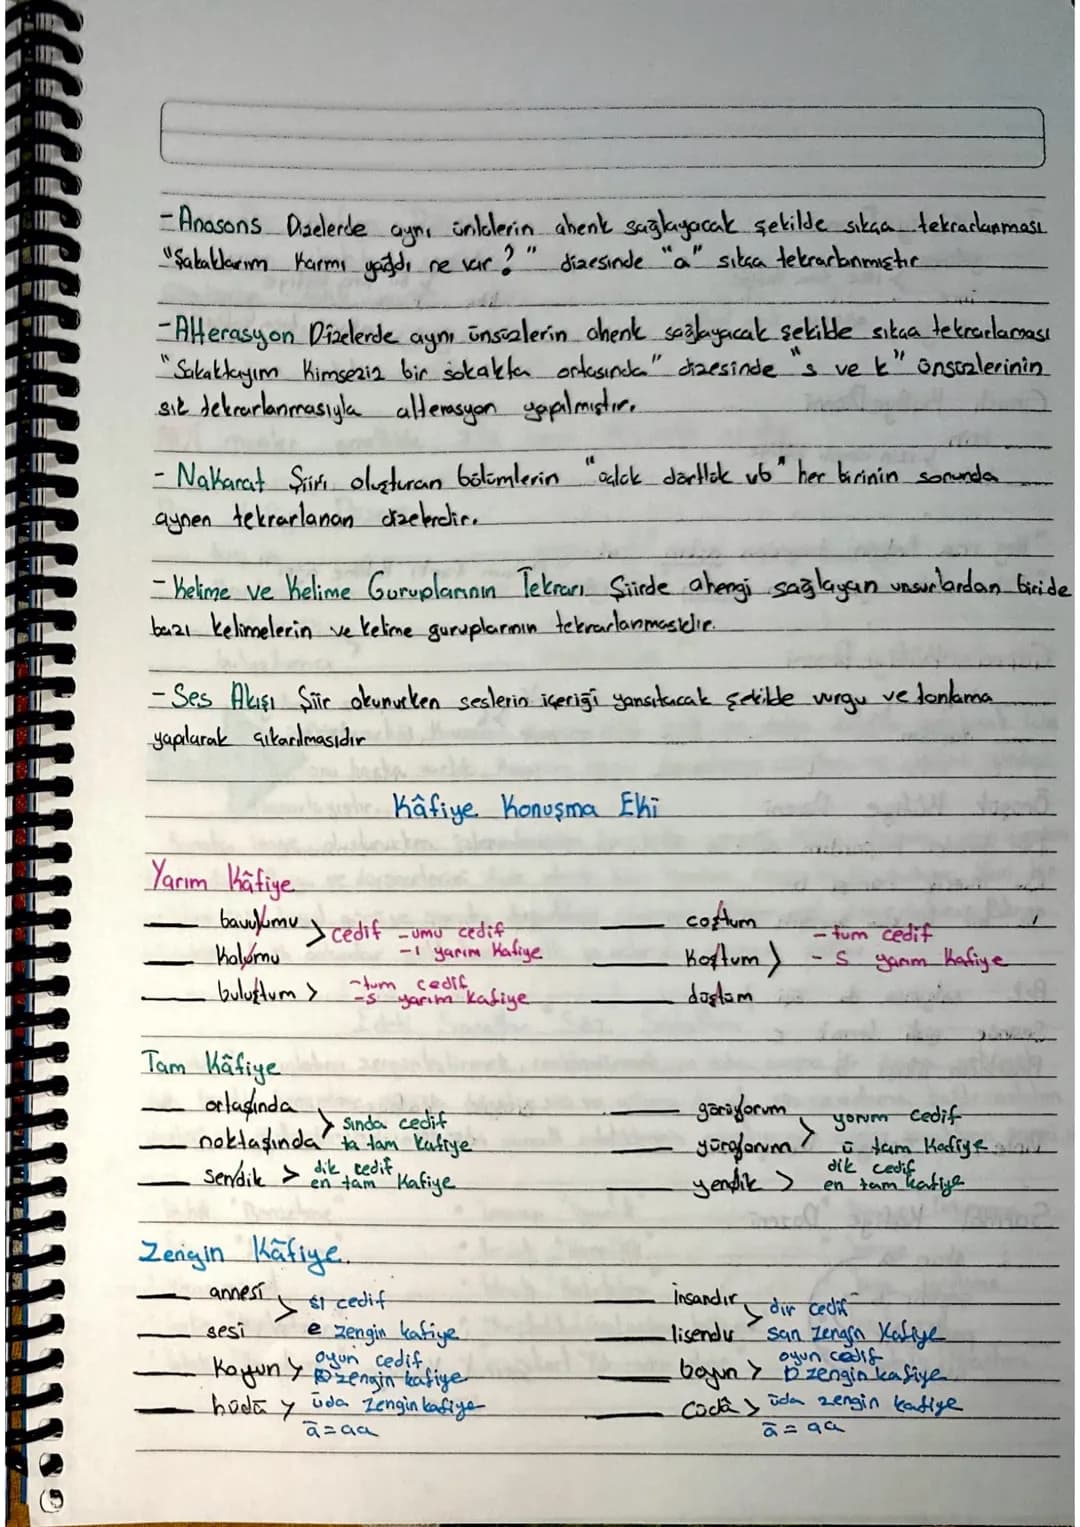 - Anasons Dizelerde aynı ünlülerin ahenk sağlayacak şekilde sıkça tekrarlanması
"Şakaklarım Karmı yağdı ne var?" dizesinde "a" sıkça tekrarlanmıştır
- Aliterasyon Dizelerde aynı ünsüzlerin ahenk sağlayacak şekilde sıkça tekrarlaması
"Sokaktayım Kimsesiz bir sokakta ortasında" dizesinde "s ve k" ünsüzlerinin
sık tekrarlanmasıyla aliterasyon yapılmıştır.
- Nakarat Şiiri oluşturan bölümlerin " dörtlük vb" her birinin sonunda
aynen tekrarlanan dizelerdir.
- Kelime ve Kelime Guruplarının Tekrarı Şiirde ahengi sağlayan unsurlardan biride
bazı kelimelerin ve kelime guruplarının tekrarlanmasıdır.
- Ses Akışı Şiir okunurken seslerin içeriği yansıtacak şekilde vurgu ve tonlama
yapılarak çıkarılmasıdır
Kâfiye Konuşma Eki
Yarım Kâfiye
bavulumu > cedif -umu cedif
kolumu -l yarım kafiye
buluştum > -tum cedif
-ş yarım kafiye
coştum -tum cedif
koştum > - ş yarım kafiye
düştüm
Tam Kâfiye
ortasında > sında cedif
noktasında ta tam kafiye
sendik > dik cedif
en tam kafiye
görüyorum > yorum cedif
yürüyorum ü tam kafiye
yendik > dik cedif
en tam kafiye
Zengin Kâfiye
annesi > si cedif
sesi e zengin kafiye
koyun > oyun cedif
zengin kafiye
hüdâ > üda zengin kafiye
ā = aa
insandır > dır cedif
zengin kafiye
boyun > oyun cedif
zengin kafiye
cüdâ > üda zengin kafiye
ā = aa